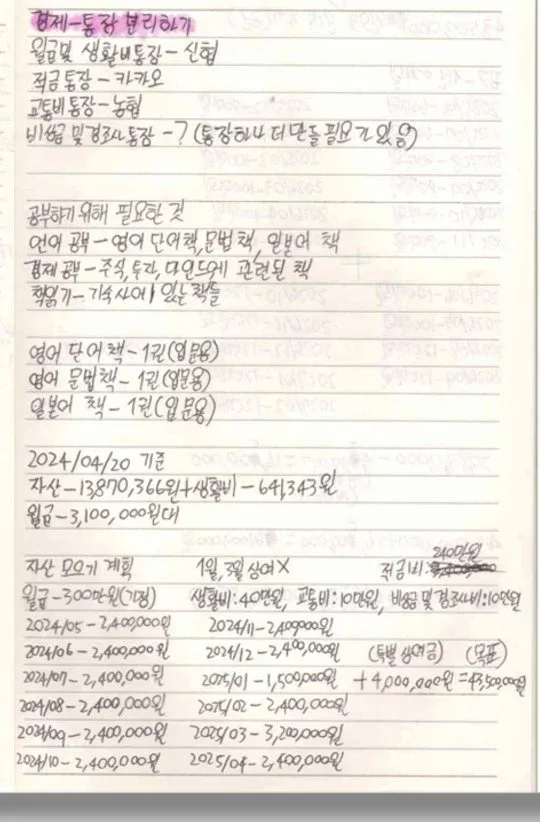 경제-통장 분리하기
월급및 생활비통장-신협
적금통장-카카오
교통비통장-농협
비상금 및 경조사통장-? (통장하나 더 만들 필요가 있음)
공부하기 위해 필요한 것
언어 공부-영어 단어책,문법 책, 일본어 책
경제 공부-주식,투자,마인드에 관련된 책
책읽기-기숙사에 있는 책들
영어 단어 책-1권(입문용)
영어 문법책-1권(입문용)
일본어 책-1권(입문용)
2024/04/20 기준
자산-13,870,366원+생활비-641,343원
월급-3,100,000원대
240만원
자산 모으기 계획 1월,3월 상여X 적금비:
월급-300만원(가정) 생활비:40만원, 교통비:10만원, 비상금 및 경조사비:10만원
2024/05-2,400,000원 2024/11-2,400,000원
2024/06-2,400,000원 2024/12-2,400,000원 (특별 상여금) (목표)
2024/07-2,400,000원 2025/01-1,500,000원 +4,000,000원=43,500,000원
2024/08-2,400,000원 2025/02-2,400,000원
2024/09-2,400,000원 2025/03-3,200,000원
2024/10-2,400,000원 2025/04-2,400,000원